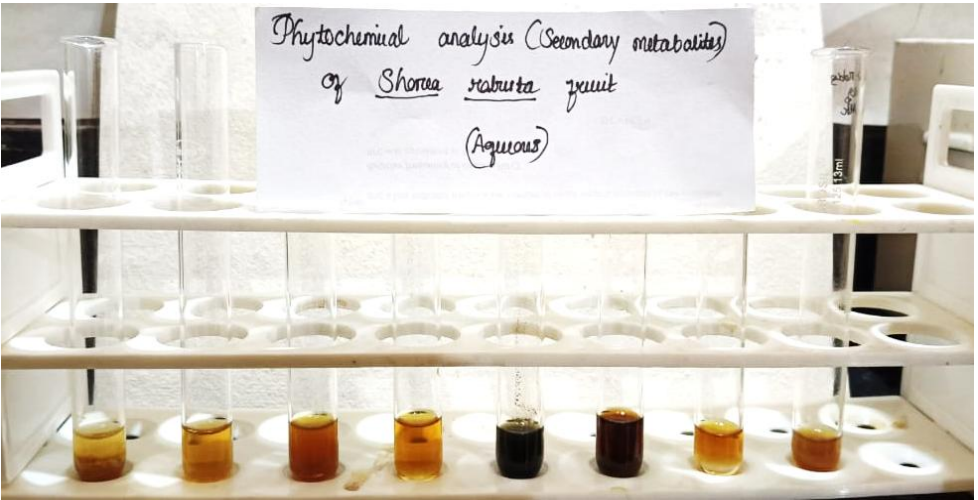 Phytochemical analysis (Secondary metabolites)
of Shorea robusta fruit
(Aqueous)
13ml